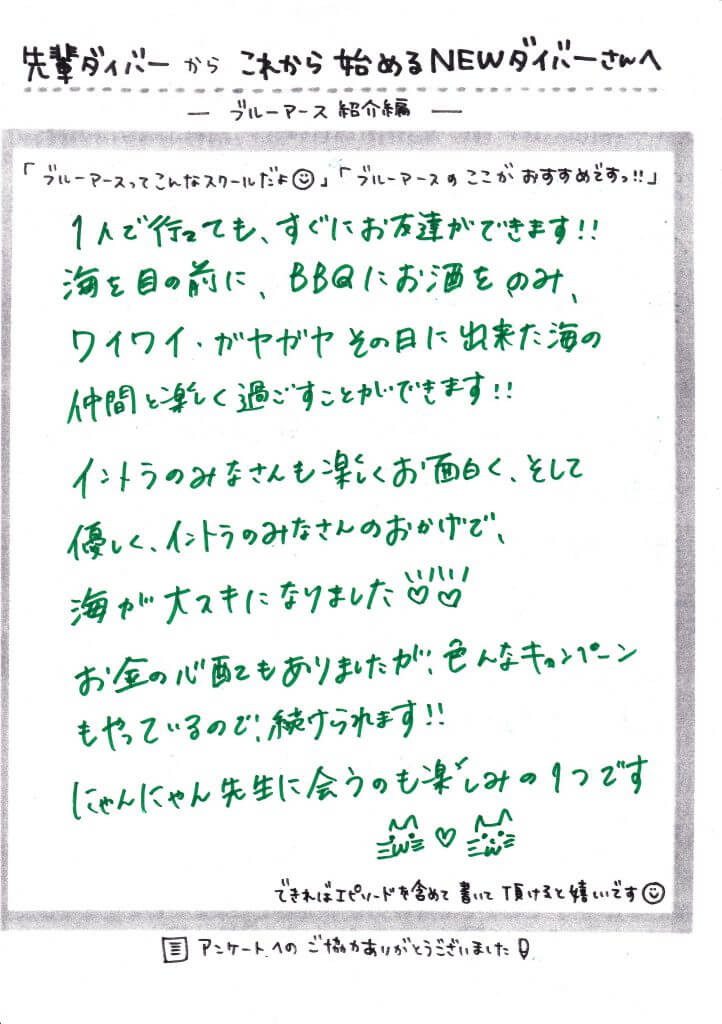 先輩ダイバーから これから始めるNEWダイバーさんへ
— ブルーアース紹介編 —
「ブルーアースってこんなスクールだよ☺」「ブルーアースのここがおすすめですっ!!」
1人で行っても、すぐにお友達ができます!!
海を目の前に、BBQにお酒をのみ、
ワイワイ・ガヤガヤその日に出来た海の
仲間と楽しく過ごすことができます!!
イントラのみなさんも楽しくお面白く、そして
優しく、イントラのみなさんのおかげで、
海が大スキになりました♡♡
お金の心配てもありましたが、色んなキャンペーン
もやっているので、続けられます!!
にゃんにゃん先生に会うのも楽しみの1つです
♡
できればエピソードを含めて書いて頂けると嬉しいです☺
アンケートへのご協力ありがとうございました